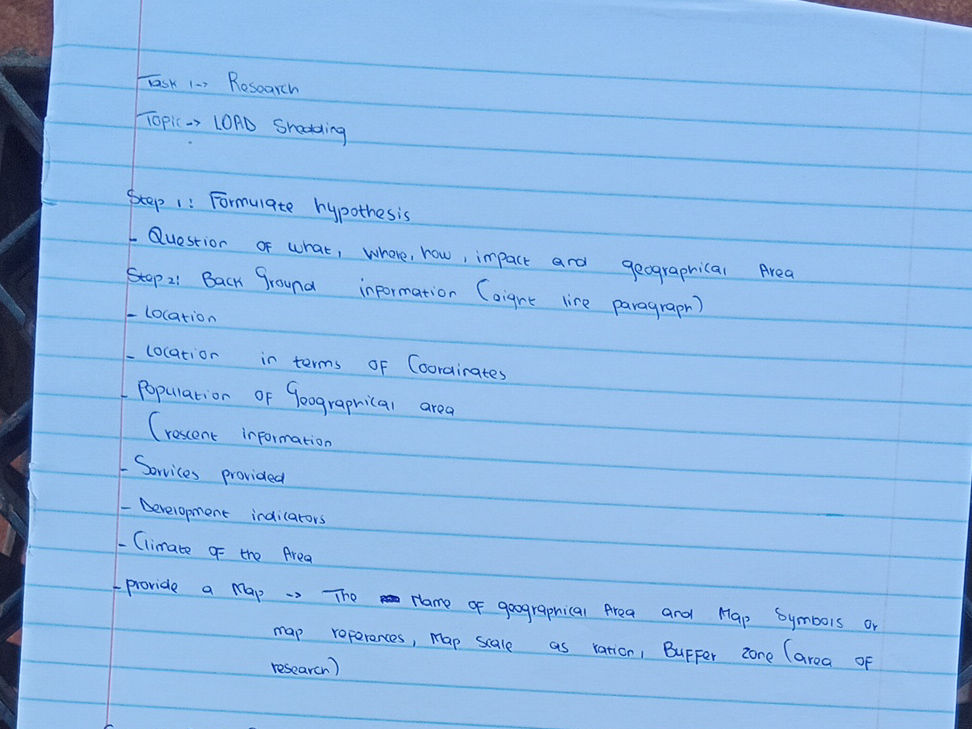 Task 1-> Research
Topic-> LOAD Shedding
Step 1: Formulate hypothesis
- Question of what, where, how, impact and geographical Area
Step 2: Back Ground information (eight line paragraph)
- Location
- Location in terms of Coordinates
- Population of Geographical area
(rescent information
- Services provided
- Development indicators
- Climate of the Area
- provide a Map -> The Name of geographical Area and Map Symbols or
map references, Map scale as ration, Buffer zone (area of
research)